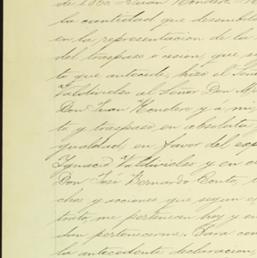 de 1860 Juan Honders
la cantidad que desembol
en la representacion de la
del traspaso ó cesion, que
lo que antecede, hizo el Señ
Valdivieso al Señor Don M
Don Juan Honders, y á mi
to y traspaso en absoluta
igualdad en favor del es
Ignacio Valdivieso y en
Don José Bernardo Couto,
chos y acciones que segun
tonto, me pertenecen hoy y en
dan pertenecerme. Para con
la antecedente declaracion,